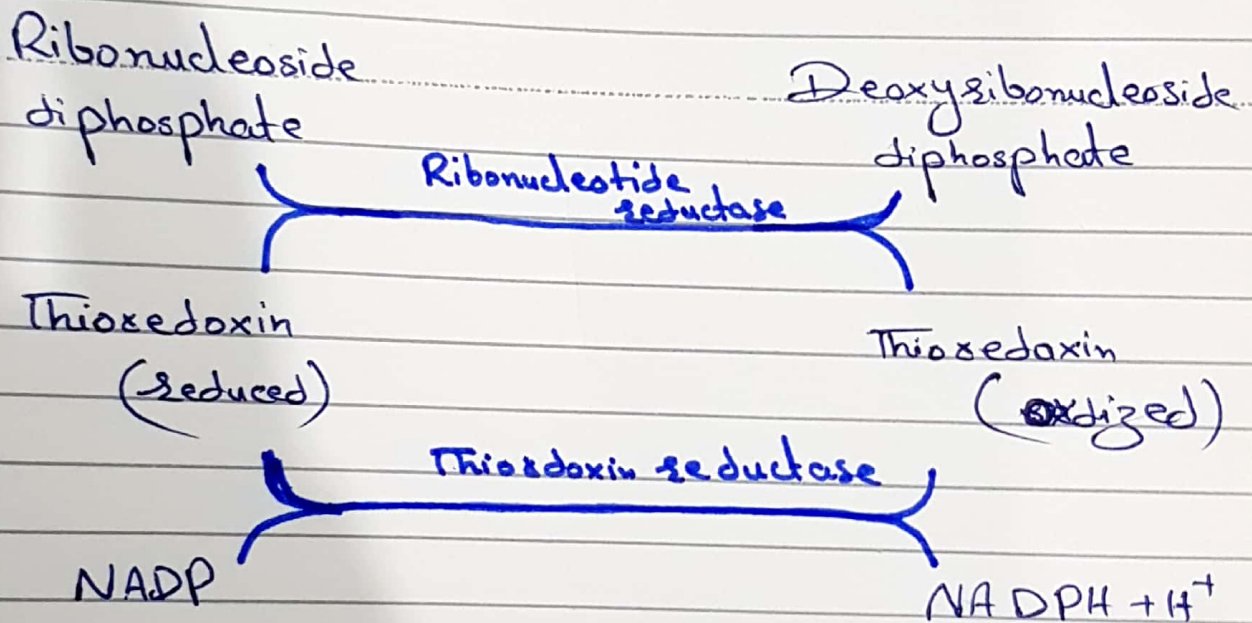 Ribonucleoside
diphosphate
Deoxyribonucleoside
diphosphate
Ribonucleotide
reductase
Thioredoxin
(reduced)
Thioredoxin
(oxdized)
Thiordoxin reductase
NADP
NADPH + H+